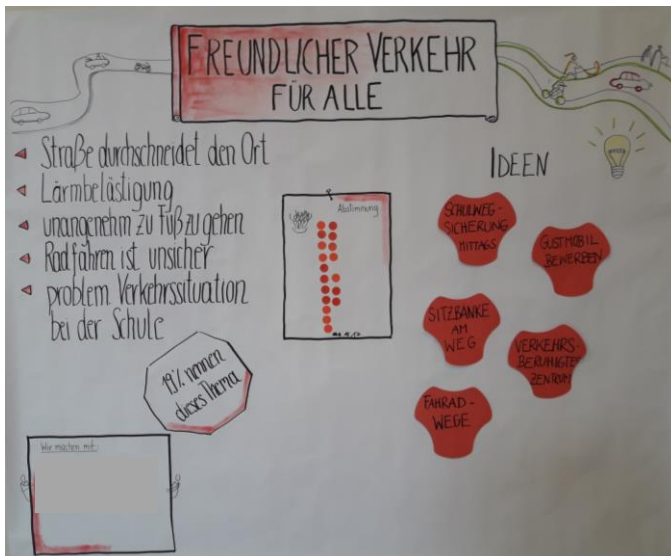 FREUNDLICHER VERKEHR
FÜR ALLE
Straße durchschneidet den Ort
Lärmbelästigung
unangenehm zu Fuß zu gehen
Radfahren ist unsicher
problem. Verkehrssituation
bei der Schule
19% nennen
dieses Thema
Wir machen mit:
Abstimmung
IDEEN
SCHULWEG-
SICHERUNG
MITTAGS
GUSTMOBIL
BEWERBEN
SITZBÄNKE
AM
WEG
VERKEHRS-
BERUHIGTES
ZENTRUM
FAHRRAD-
WEGE